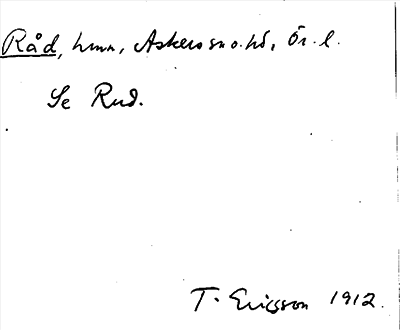 Råd, hmn, Askers sn o. hd, Ör. l.
Se Rud.
T. Ericsson 1912.